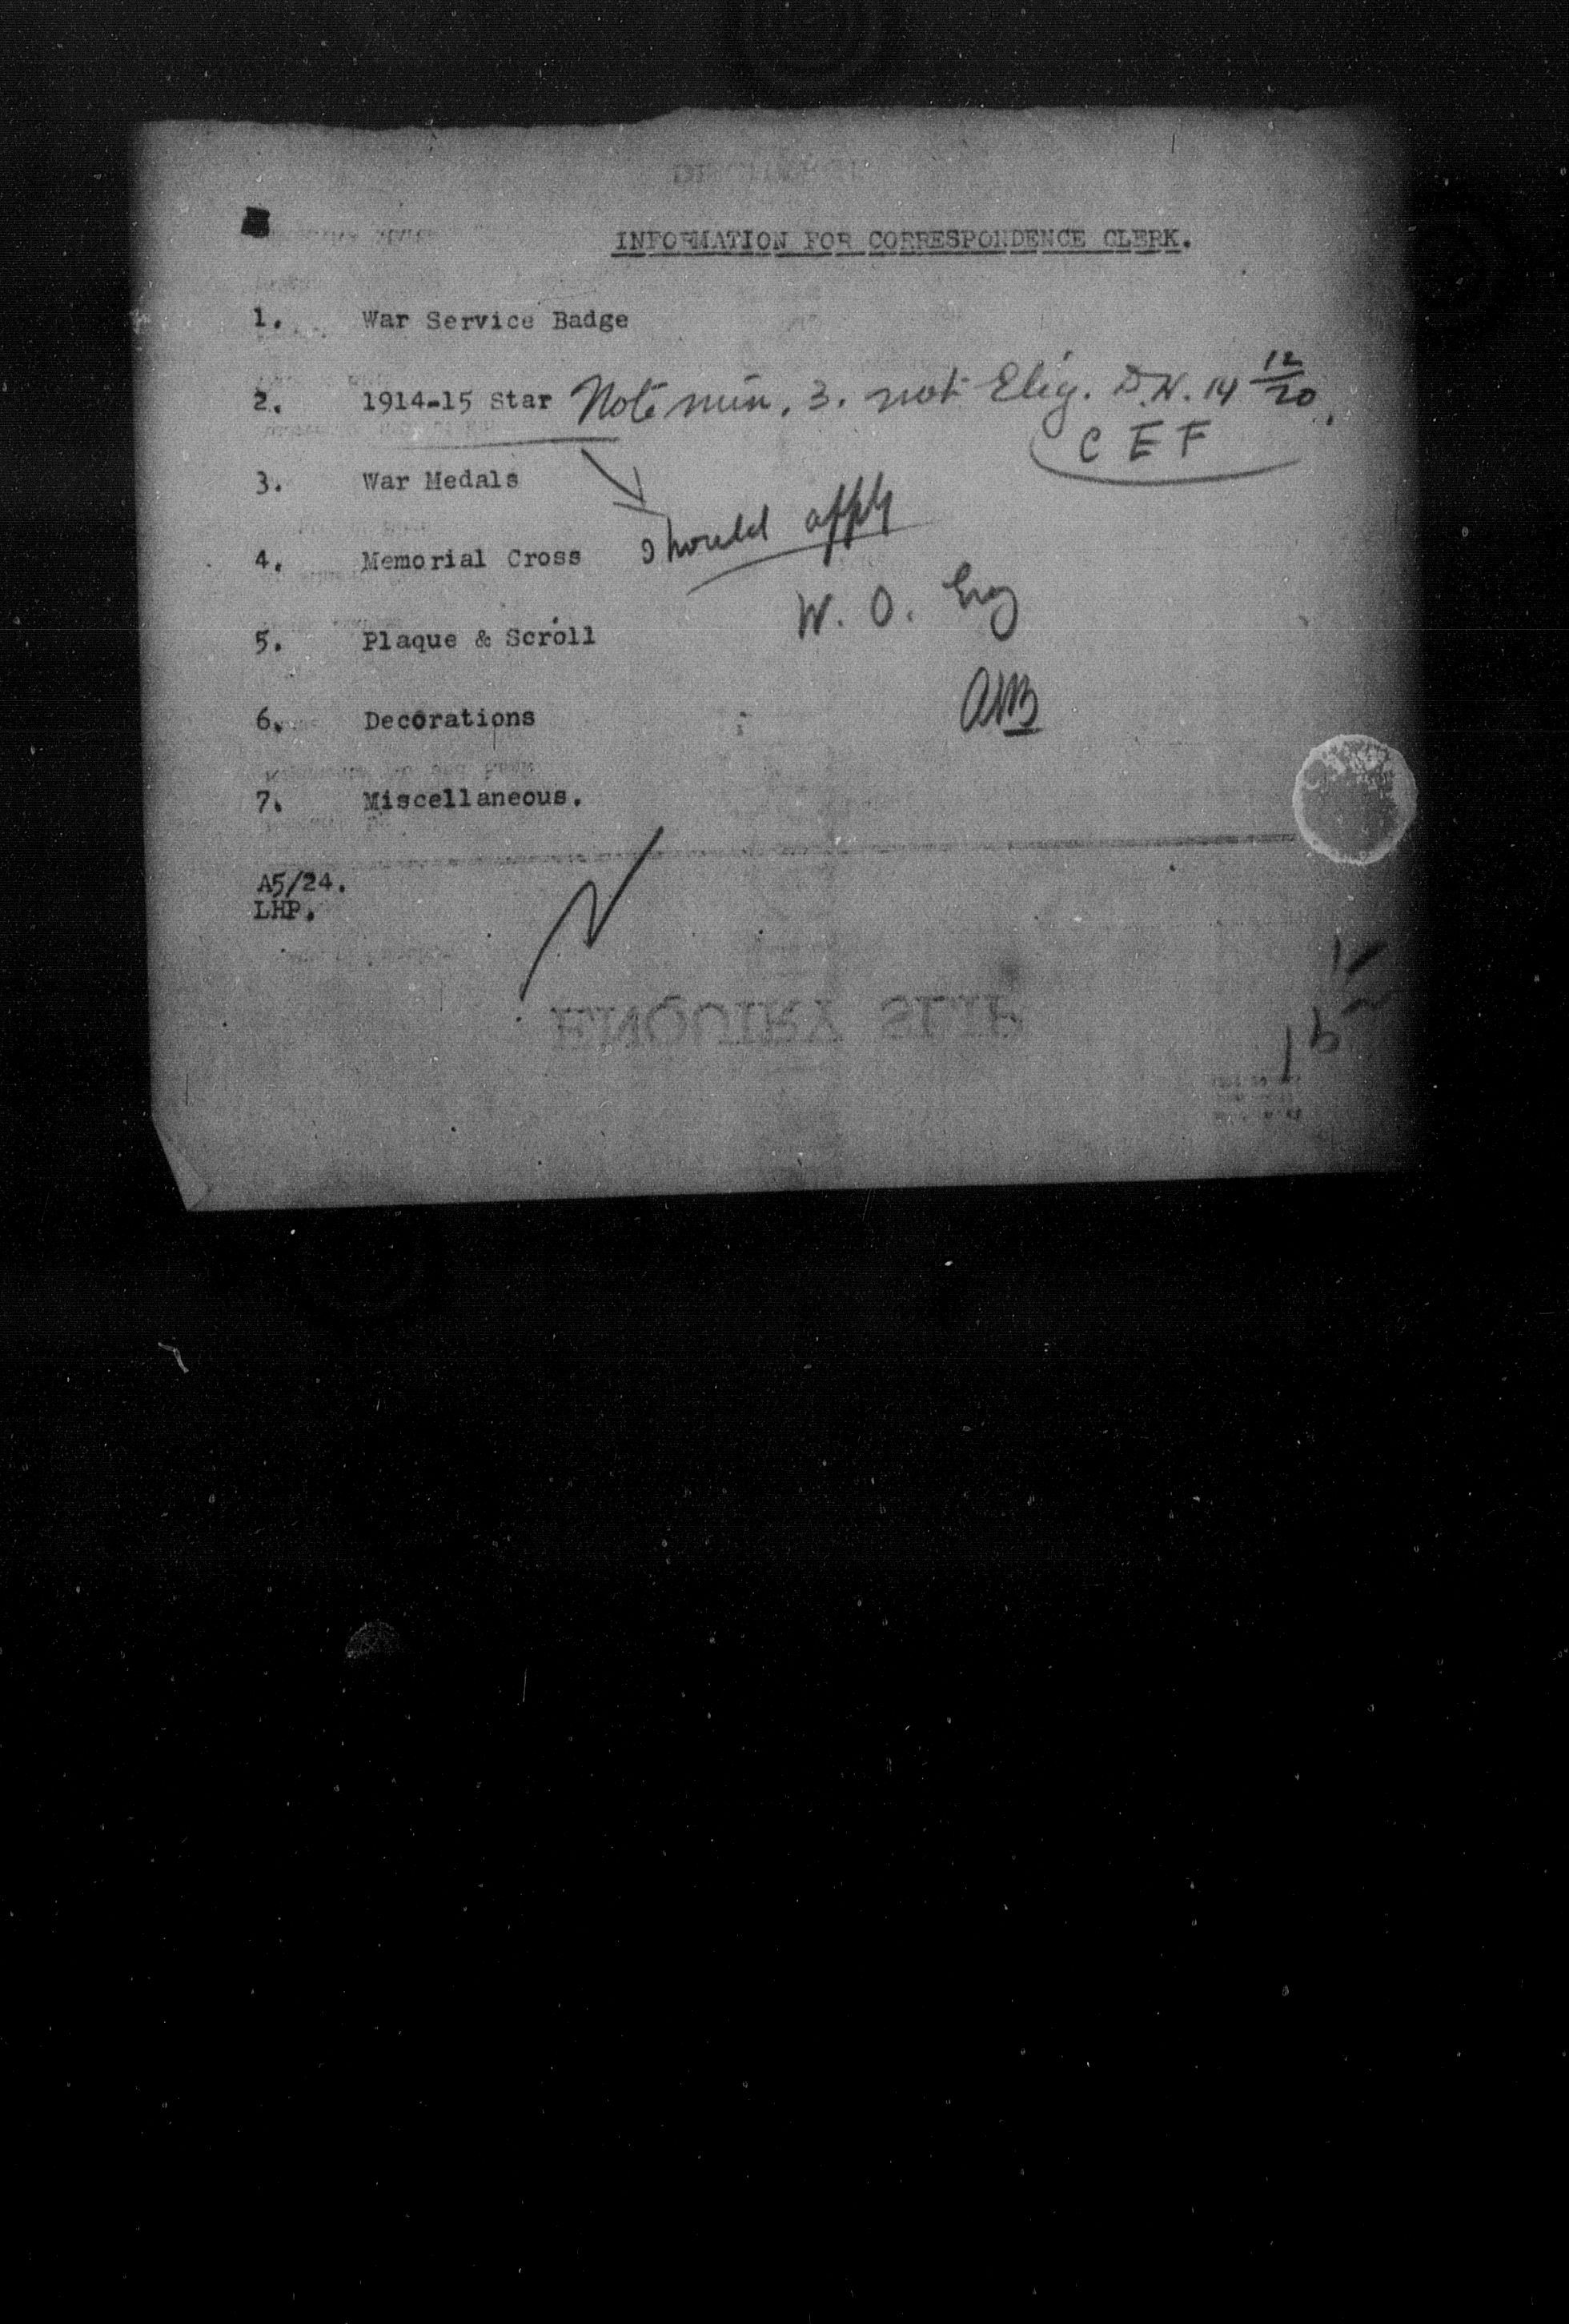 INFORMATION FOR CORRESPONDENCE CLERK.
1. War Service Badge
2. 1914-15 Star Note min. 3. not Elig. D.N. 14 12/20.
C E F
3. War Medals
should apply
4. Memorial Cross
W. O. Eng
5. Plaque & Scroll
6. Decorations
7. Miscellaneous.
A5/24.
LHP.
ENQUIRY SLIP